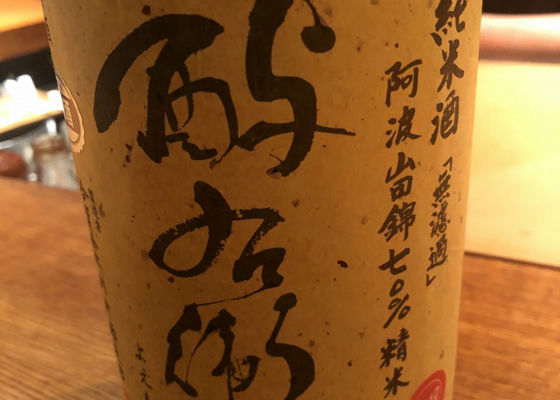 純米酒「無濾過」
阿波山田錦七〇%精米
酔右衛
よえ